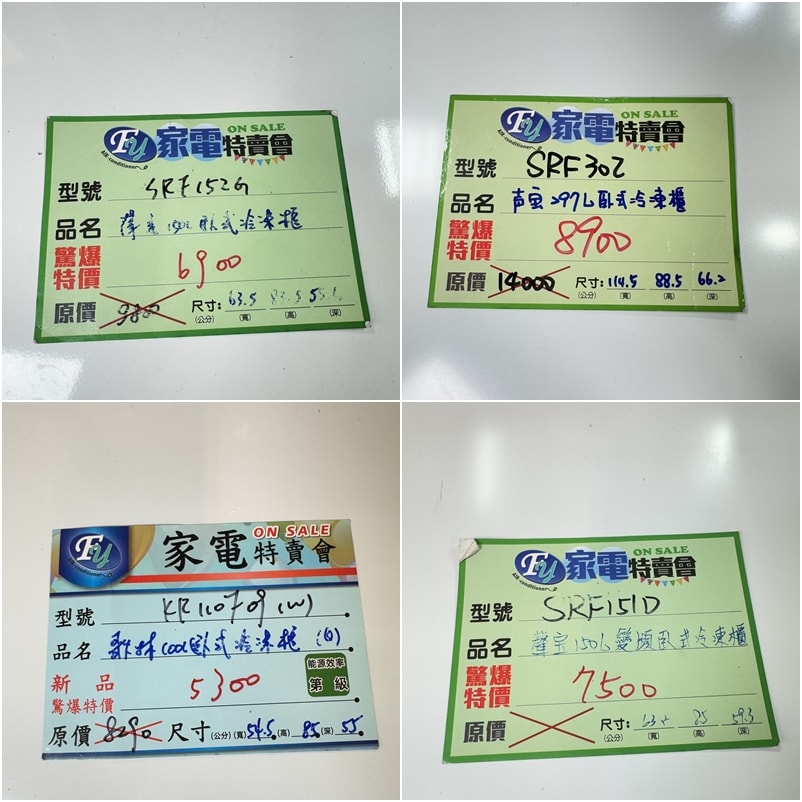 Fy 家電特賣會 ON SALE
air-conditioner
型號 SRF152G
品名 聲宝 150L 臥式冷凍櫃
驚爆特價 6900
原價 9800 尺寸:(公分) 63.5(寬) 83.5(高) (深)
Fy 家電特賣會 ON SALE
air-conditioner
型號 SRF302
品名 声宝297L臥式冷凍櫃
驚爆特價 8900
原價 14000 尺寸:(公分) 114.5(寬) 88.5(高) 66.2(深)
Fy 家電特賣會 ON SALE
air-conditioner
型號 KR110F09(W)
品名 歌林100L臥式冷凍櫃(白)
新品驚爆特價 5300
能源效率 第 級
原價 8290 尺寸(公分)(寬)54.5(高)85(深)55
Fy 家電特賣會 ON SALE
air-conditioner
型號 SRF151D
品名 聲宝150L變頻臥式冷凍櫃
驚爆特價 7500
原價 尺寸:(公分) (寬) 85(高) 59.3(深)